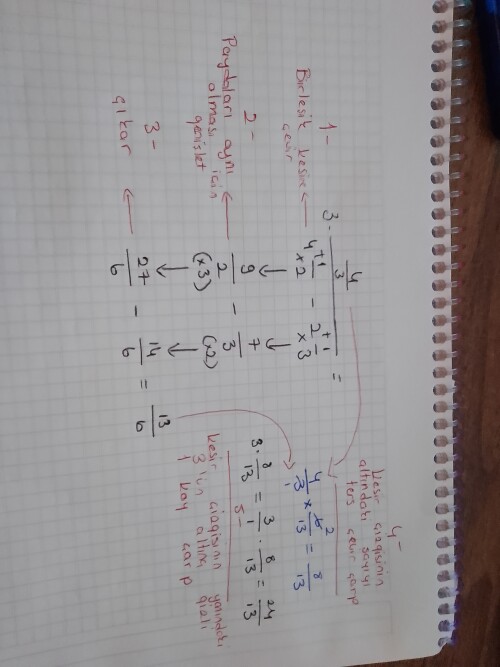 1-
Birleşik kesire
çevir
2-
Paydaları aynı
olması için
genişlet
3-
çıkar
3 . 4/3
4 +1/×2 - 2 +1/×3 =
9/2 - 7/3
(×3) (×2)
27/6 - 14/6 = 13/6
4-
kesir çizgisinin
altındaki sayıyı
ters çevir çarp
4/3 × 6/13 = 8/13
1 2
3 . 8/13 = 3/1 . 8/13 = 24/13
5-
kesir çizgisinin yanındaki
3 için altına gizli
1 koy çarp